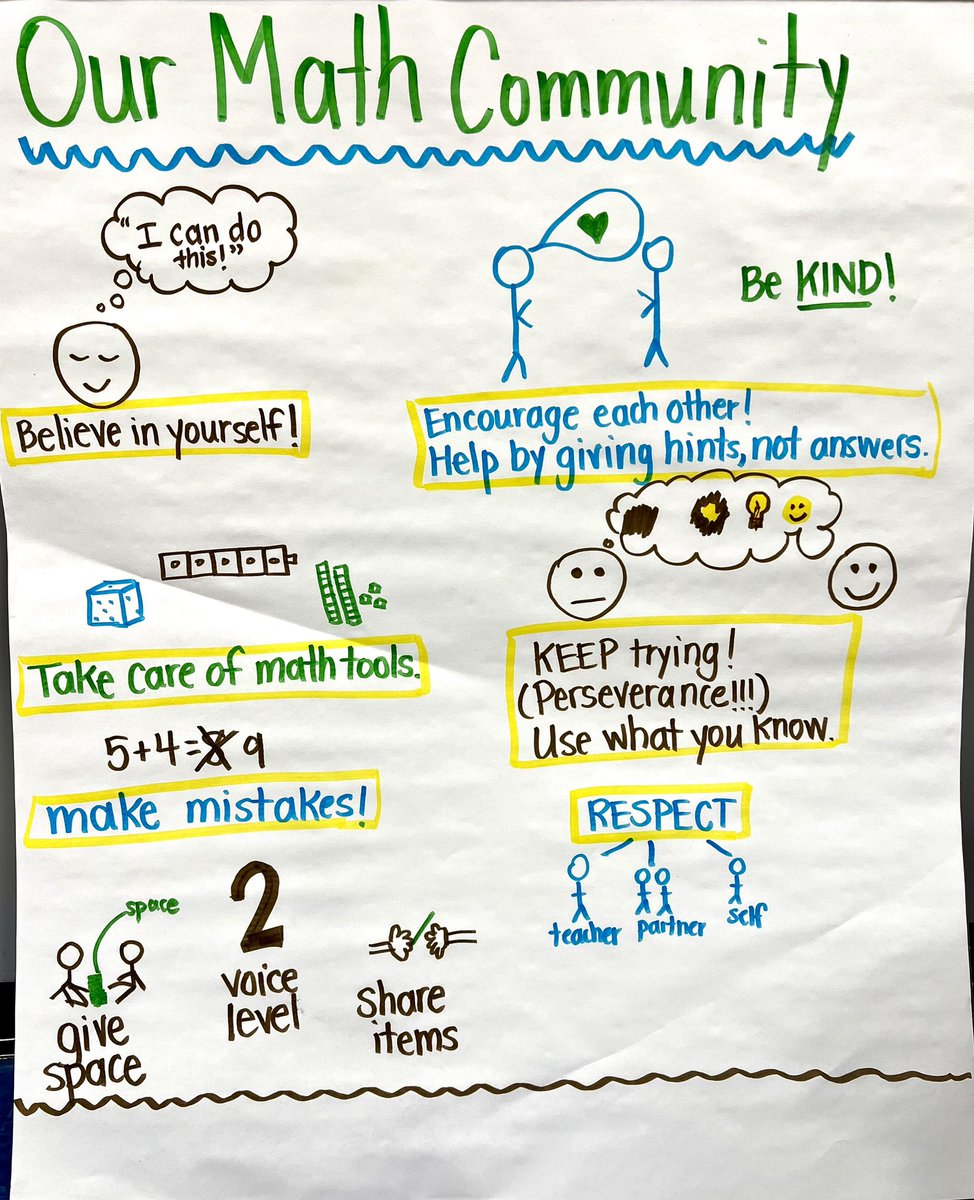 Our Math Community
"I can do
this!"
Believe in yourself!
Be KIND!
Encourage each other!
Help by giving hints, not answers.
Take care of math tools.
KEEP trying!
(Perseverance!!!)
Use what you know.
5+4=8 9
make mistakes!
RESPECT
teacher partner self
space
give
space
2
voice
level
share
items